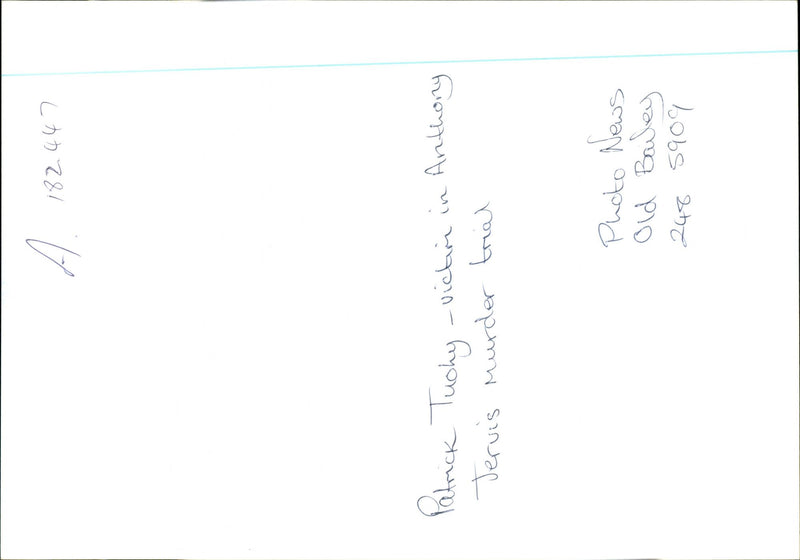 A. 182447
Patrick Tuohy - victim in Anthony
Jervis Murder trial
Photo News
Old Bailey
248 5909